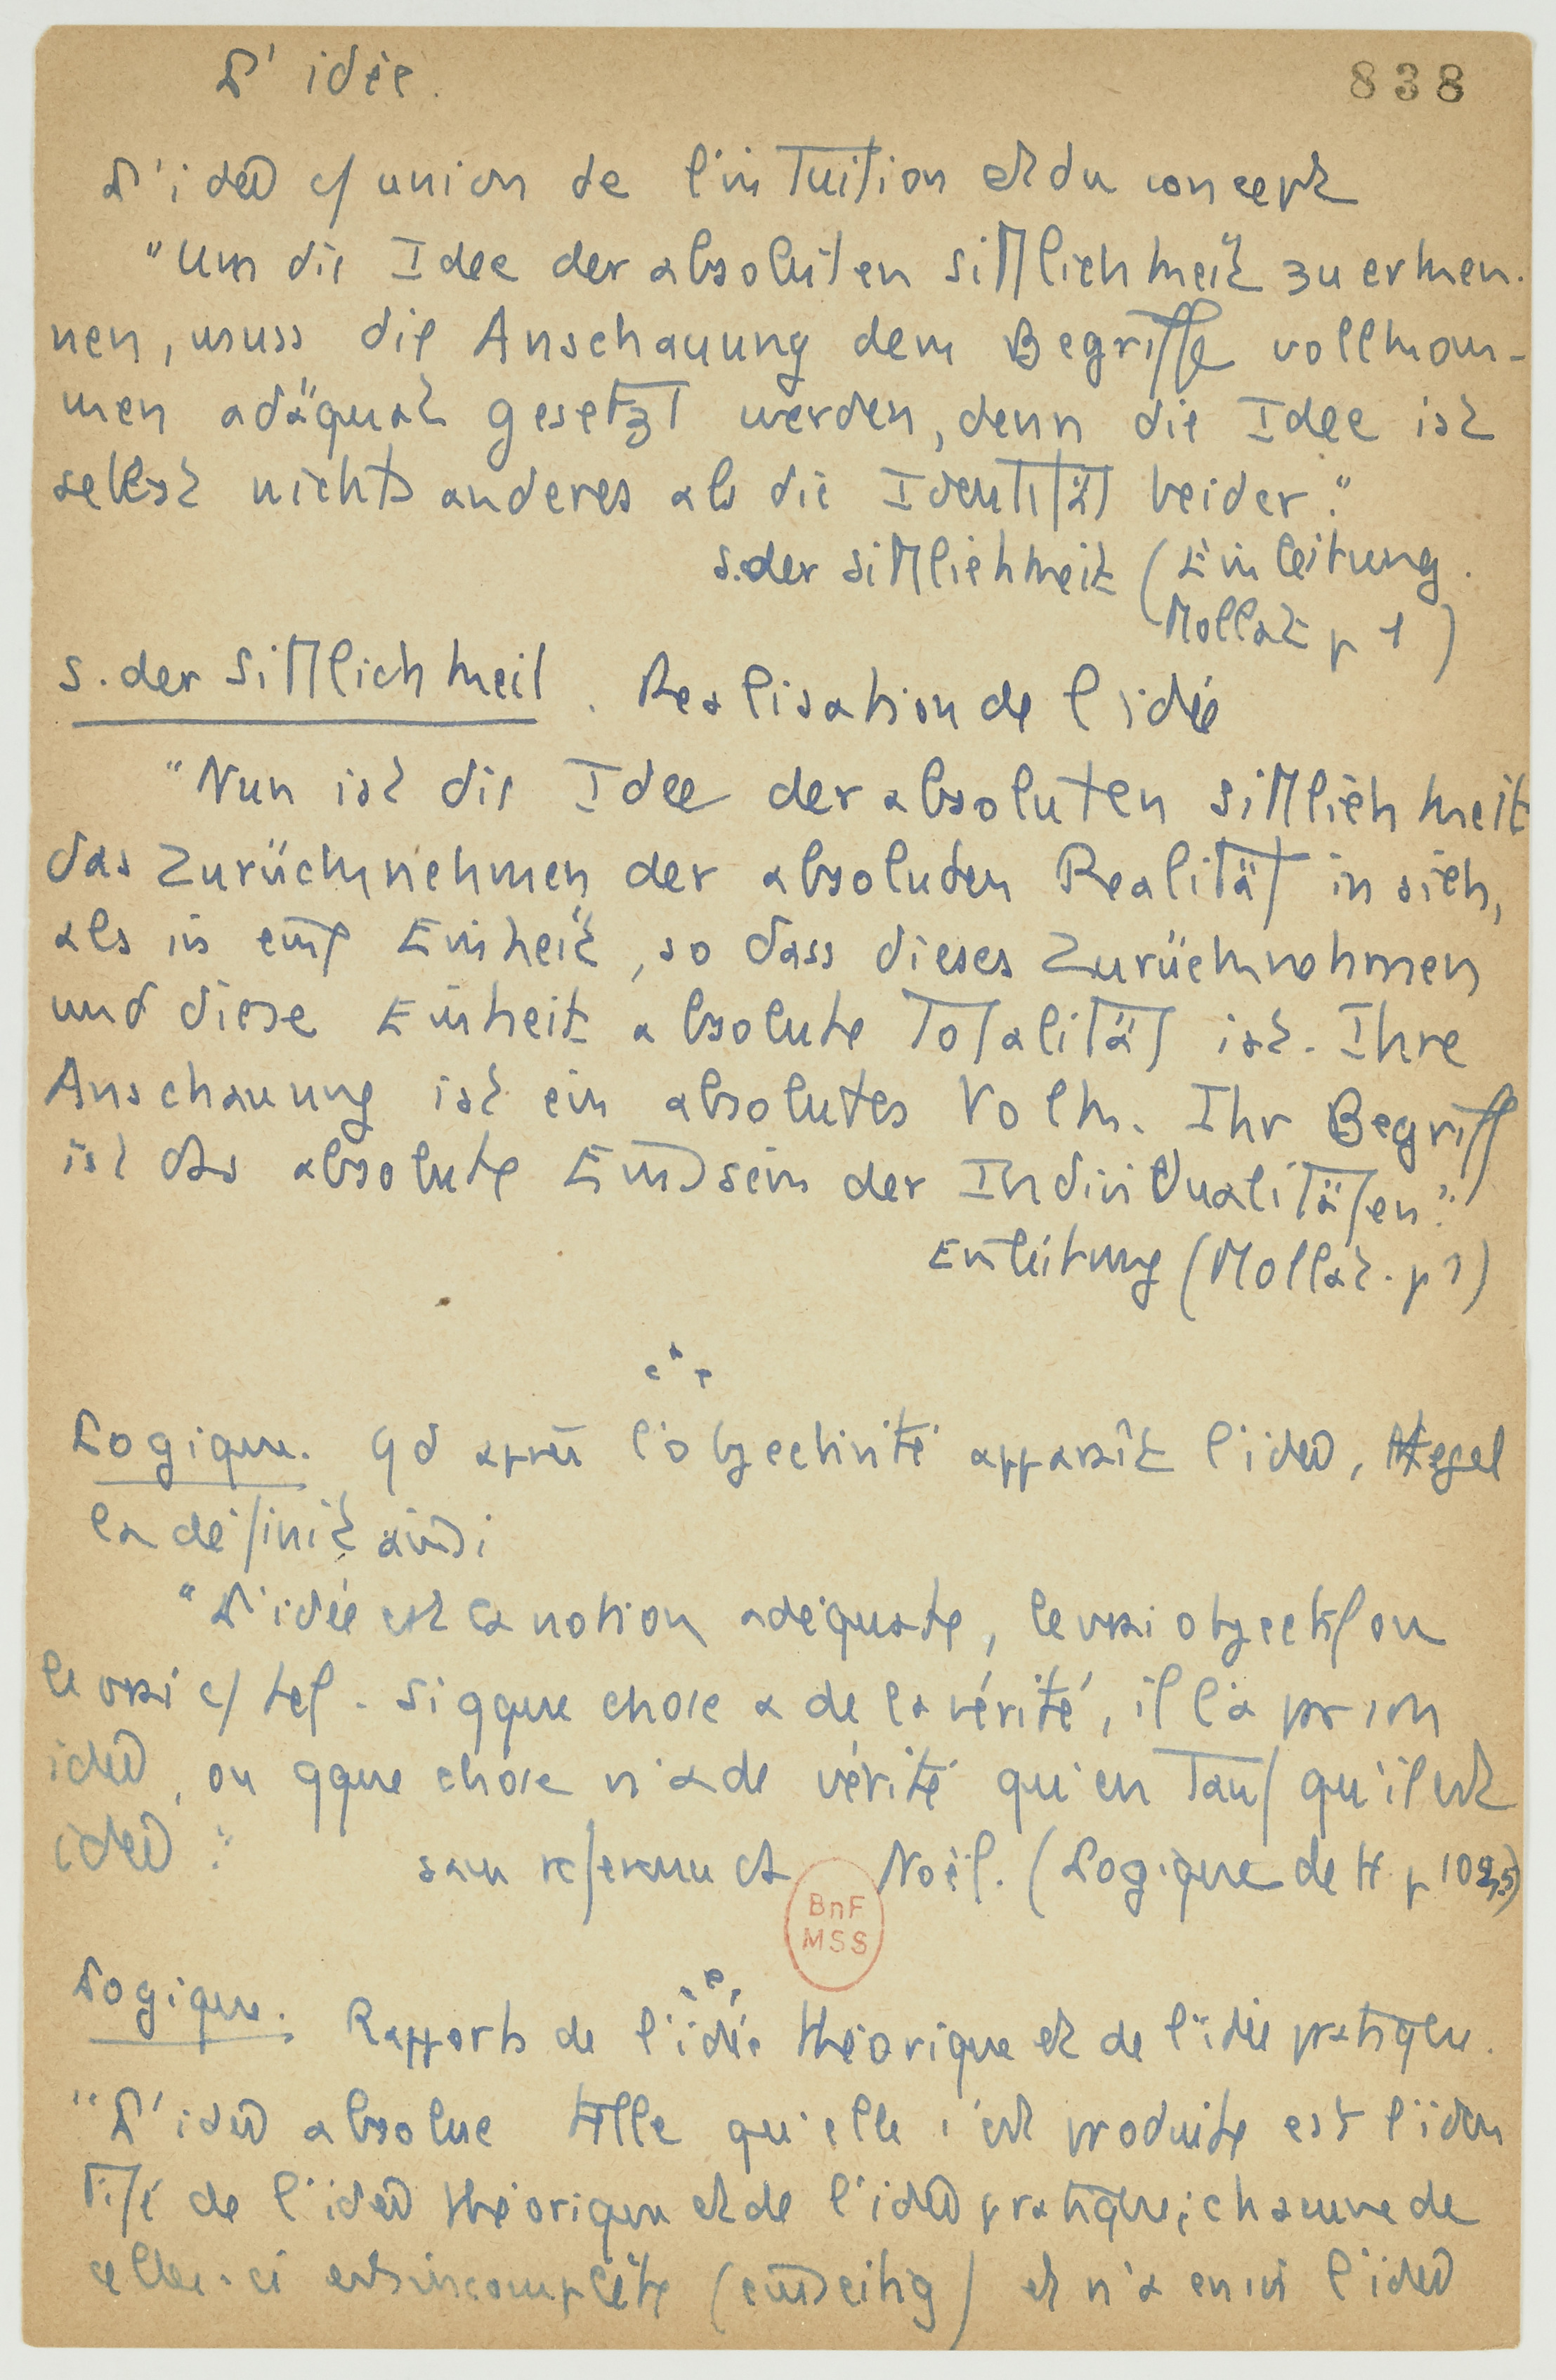 L'idée.
838
L'idée c/ union de l'intuition et du concept
"Um die Idee der absoluten Sittlichkeit zu erken-
nen, muss die Anschauung dem Begriffe vollkom-
men adäquat gesetzt werden, denn die Idee ist
selbst nichts anderes als die Identität beider."
S. der Sittlichkeit (Einleitung.
Mollat p 1)
S. der Sittlichkeit. Realisation de l'idée
"Nun ist die Idee der absoluten Sittlichkeit
das Zurücknehmen der absoluten Realität in sich,
als in eine Einheit, so dass dieses Zurücknehmen
und diese Einheit absolute Totalität ist. Ihre
Anschauung ist ein absolutes Volk. Ihr Begriff
ist das absolute Einssein der Individualitäten."
Einleitung (Mollat. p 1)
Logique. qd après l'objectivité apparaît l'idée, Hegel
la définit ainsi
"L'idée est la notion adéquate, le vrai objectif ou
le vrai c/ tel. Si qque chose a de la vérité, il l'a par son
idée, ou qque chose n'a de vérité qu'en tant qu'il est
idée."
sans référence et Noël. (Logique de H p 102,5)
BnF
MSS
Logique. Rapports de l'idée théorique et de l'idée pratique.
"L'idée absolue telle qu'elle s'est produite est l'iden
tité de l'idée théorique et de l'idée pratique; chacune de
celles-ci est incomplète (einseitig) et n'a en soi l'idée